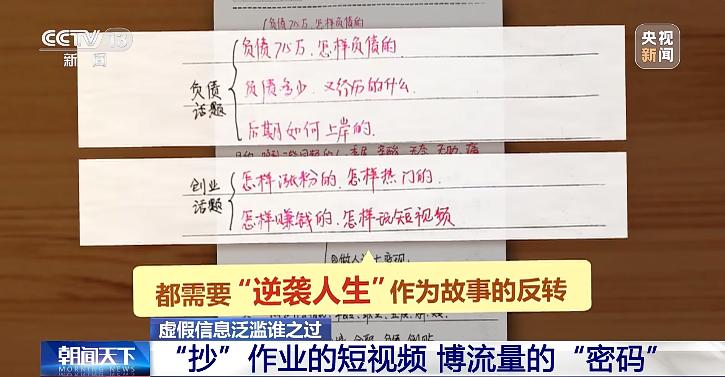 CCTV 13
新闻
央视
新闻
负债715万.怎样负债的
负债
话题
负债715万.怎样负债的
负债多少.又经历的什么.
后期如何上岸的.
创业
话题
怎样涨粉的.怎样热门的.
怎样赚钱的.怎样玩短视频
都需要“逆袭人生”作为故事的反转
虚假信息泛滥谁之过
朝闻天下
MORNING NEWS
“抄”作业的短视频 博流量的“密码”